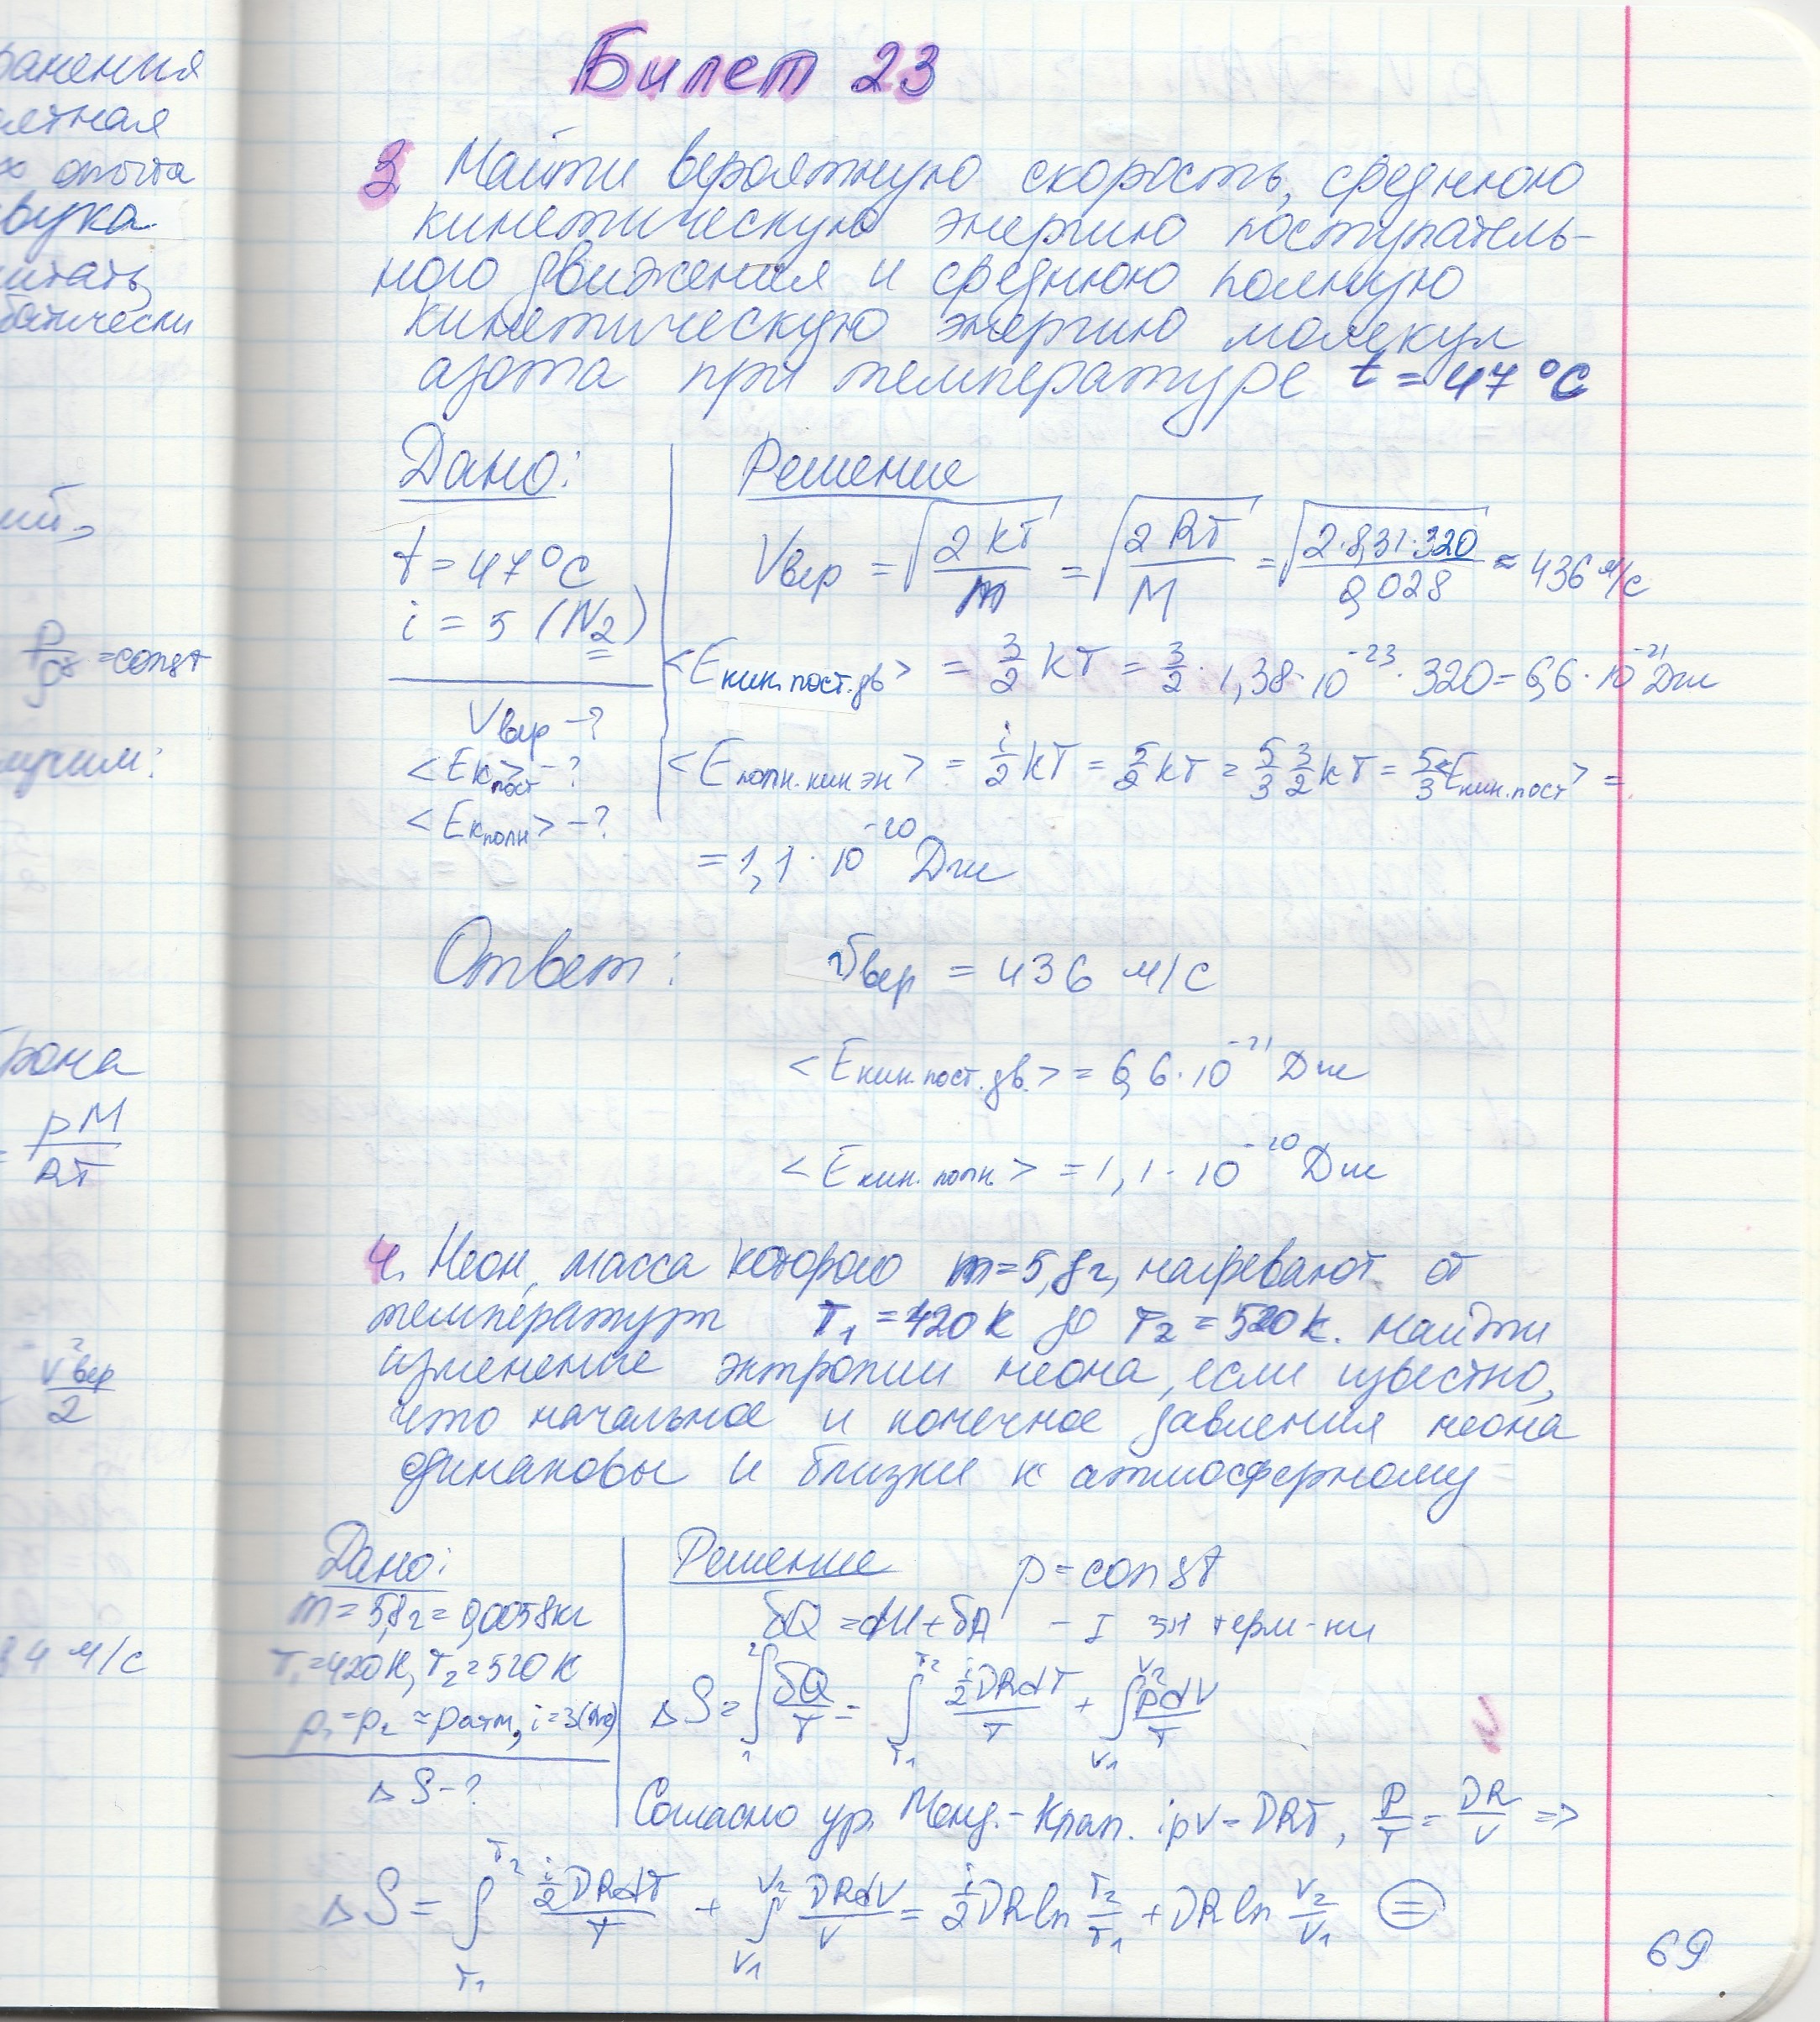 ранения
ятная
х опыта
вука.
итать,
батически
ий,
= const
лучим:
рона
= pM / RT
v² вер / 2
34 м/с
Билет 23
3 Найти вероятную скорость, среднюю
кинетическую энергию поступатель-
ного движения и среднюю полную
кинетическую энергию молекул
азота при температуре t = 47 °C
Дано:
t = 47°C
i = 5 (N₂)
Vвер – ?
<Eк пост> – ?
<Eк полн> – ?
Решение
Vвер = √(2kT/m) = √(2RT/M) = √(2·8,31·320/0,028) ≈ 436 м/с
<Eкин.пост.дв> = 3/2 kT = 3/2 · 1,38·10⁻²³ · 320 = 6,6 · 10⁻²¹ Дж
<Eполн.кин эн> = i/2 kT = 5/2 kT = 5/3 3/2 kT = 5/3 <Eкин.пост> =
= 1,1 · 10⁻²⁰ Дж
Ответ: υвер = 436 м/с
<Eкин.пост.дв.> = 6,6·10⁻²¹ Дж
<Eкин.полн.> = 1,1·10⁻²⁰ Дж
4. Неон, масса которого m=5,8г, нагревают от
температуры T₁ = 420K до T₂ = 520K. Найти
изменение энтропии неона, если известно,
что начальное и конечное давления неона
одинаковы и близки к атмосферному
Дано:
m = 5,8г = 0,0058кг
T₁=420K, T₂=520K
p₁=p₂ ≈ pатм, i=3(Ne)
ΔS – ?
Решение p = const
δQ = dU + δA – I зн терм-ки
ΔS = ∫₁² δQ/T = ∫_T₁^T₂ (i/2 νRdT)/T + ∫_V₁^V₂ pdV/T
Согласно ур. Менд.-Клап. : pV = νRT, P/T = νR/V =>
ΔS = ∫_T₁^T₂ (i/2 νRdT)/T + ∫_V₁^V₂ νRdV/V = i/2 νR ln T₂/T₁ + νR ln V₂/V₁ (=)
69